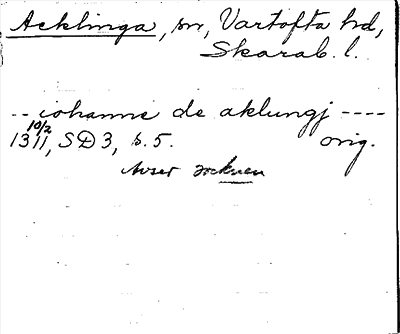 Acklinga, sn, Vartofta hd,
Skarab. l.
-- iohanne de aklungj ----
10/2
1311, SD 3, s. 5. orig.
Avser socknen